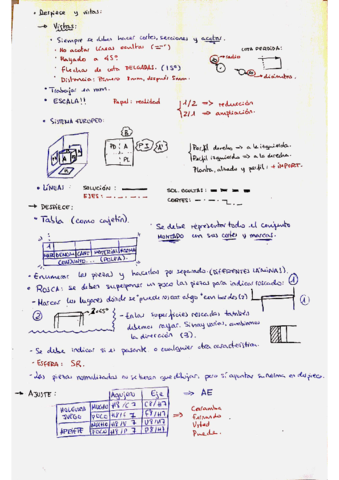 • Despiece y vistas:
→ Vistas:
• Siempre se deben hacer cortes, secciones y acotar.
• No acotar líneas ocultas (=")
• Rayado a 45º
• Flechas de cota DELGADAS. (15º)
• Distancia: Primero 8mm, después 5mm.
COTA DROSIDA:
radio
diámetro
• Trabajar en mm.
• ESCALA!!
Papel: realidad
1/2 => reducción
2/1 => ampliación.
• SISTEMA EUROPEO:
A
PD A PI A'
PL
Perfil derecho => a la izquierda.
Perfil izquierdo => a la derecha.
Planta, alzado y perfil: + IMPORT.
• LÍNEAS:
SOLUCIÓN:
EJES:
SOL. OCULTAS:
CORTES:
→ DESPIECE:
• Tabla (como cajetín).
1
MARCA DENOM. CANT. MATERIAL NORMA
CONJUNTO... (POLEA).
• Se debe representar todo el conjunto
MONTADO con sus cortes y marcas.
• Enumerar las piezas y hacerlas por separado (DIFERENTES LÁMINAS).
• ROSCA: se deben superponer un poco las piezas para indicar roscado
1
• Marcar los lugares donde se puede rozar algo con bordes (2)
2
2x45º
• En las superficies roscadas también
debemos rayar. Si hay varias, cambiamos
la dirección
1
• Se debe indicar si es pasante o cualquier otra característica.
• ESFERA: SR.
• Las piezas normalizadas no se tienen que dibujar, pero sí apuntar su norma en despiece.
→ AJUSTE:
Agujero Eje
→ AE
HOLGURA JUEGO
MUCHO H8/C7 C8/H7
POCO H8/F7 F8/H7
APRIETE
Caramba
Fernando
Usted
Puede.